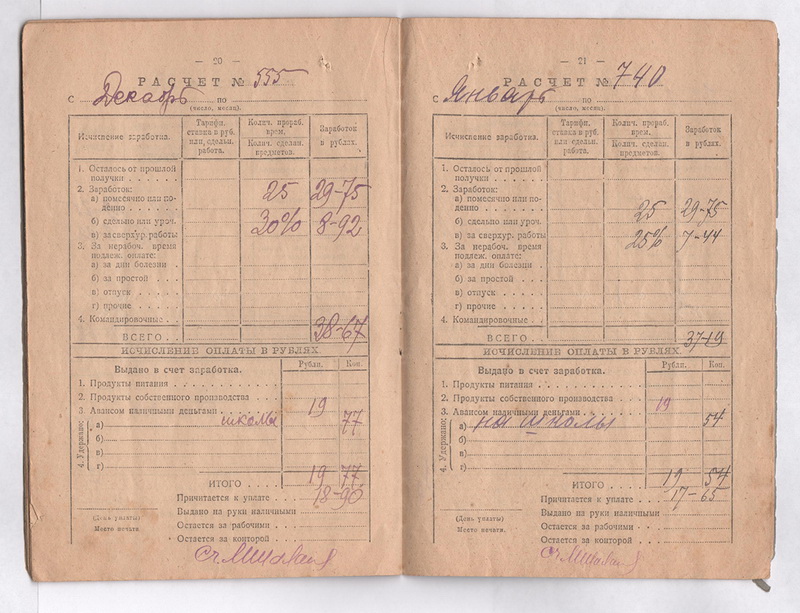 — 20 —
РАСЧЕТ № 555
с Декабрь по
(число, месяц).
Исчисление заработка.
Тарифн. ставка в руб. или сдельн. работа.
Колич. прораб. врем.
Колич. сделан. предметов.
Заработок в рублях.
1. Осталось от прошлой
получки
2. Заработок:
а) помесячно или по-
денно 25 29-75
б) сдельно или уроч. 30% 8-92
в) за сверхур. работы
3. За нерабоч. время
подлеж. оплате:
а) за дни болезни
б) за простой
в) отпуск
г) прочие
4. Командировочные
ВСЕГО 38-67
ИСЧИСЛЕНИЕ ОПЛАТЫ В РУБЛЯХ.
Выдано в счет заработка. Рубли. Коп.
1. Продукты питания
2. Продукты собственного производства
3. Авансом наличными деньгами 19
4. Удержано:
а) школы 77
б)
в)
г)
ИТОГО 19 77
Причитается к уплате 18-90
Выдано на руки наличными
(День уплаты)
Остается за рабочими
Место печати.
Остается за конторой
— 21 —
РАСЧЕТ № 740
с Январь по
(число, месяц).
Исчисление заработка.
Тарифн. ставка в руб. или сдельн. работа.
Колич. прораб. врем.
Колич. сделан. предметов.
Заработок в рублях.
1. Осталось от прошлой
получки
2. Заработок:
а) помесячно или по-
денно 25 29-75
б) сдельно или уроч.
в) за сверхур. работы 25% 7-44
3. За нерабоч. время
подлеж. оплате:
а) за дни болезни
б) за простой
в) отпуск
г) прочие
4. Командировочные
ВСЕГО 37-19
ИСЧИСЛЕНИЕ ОПЛАТЫ В РУБЛЯХ.
Выдано в счет заработка. Рубли. Коп.
1. Продукты питания
2. Продукты собственного производства 19
3. Авансом наличными деньгами
4. Удержано:
а) на школы 54
б)
в)
г)
ИТОГО 19 54
Причитается к уплате 17-65
Выдано на руки наличными
(День уплаты)
Остается за рабочими
Место печати.
Остается за конторой